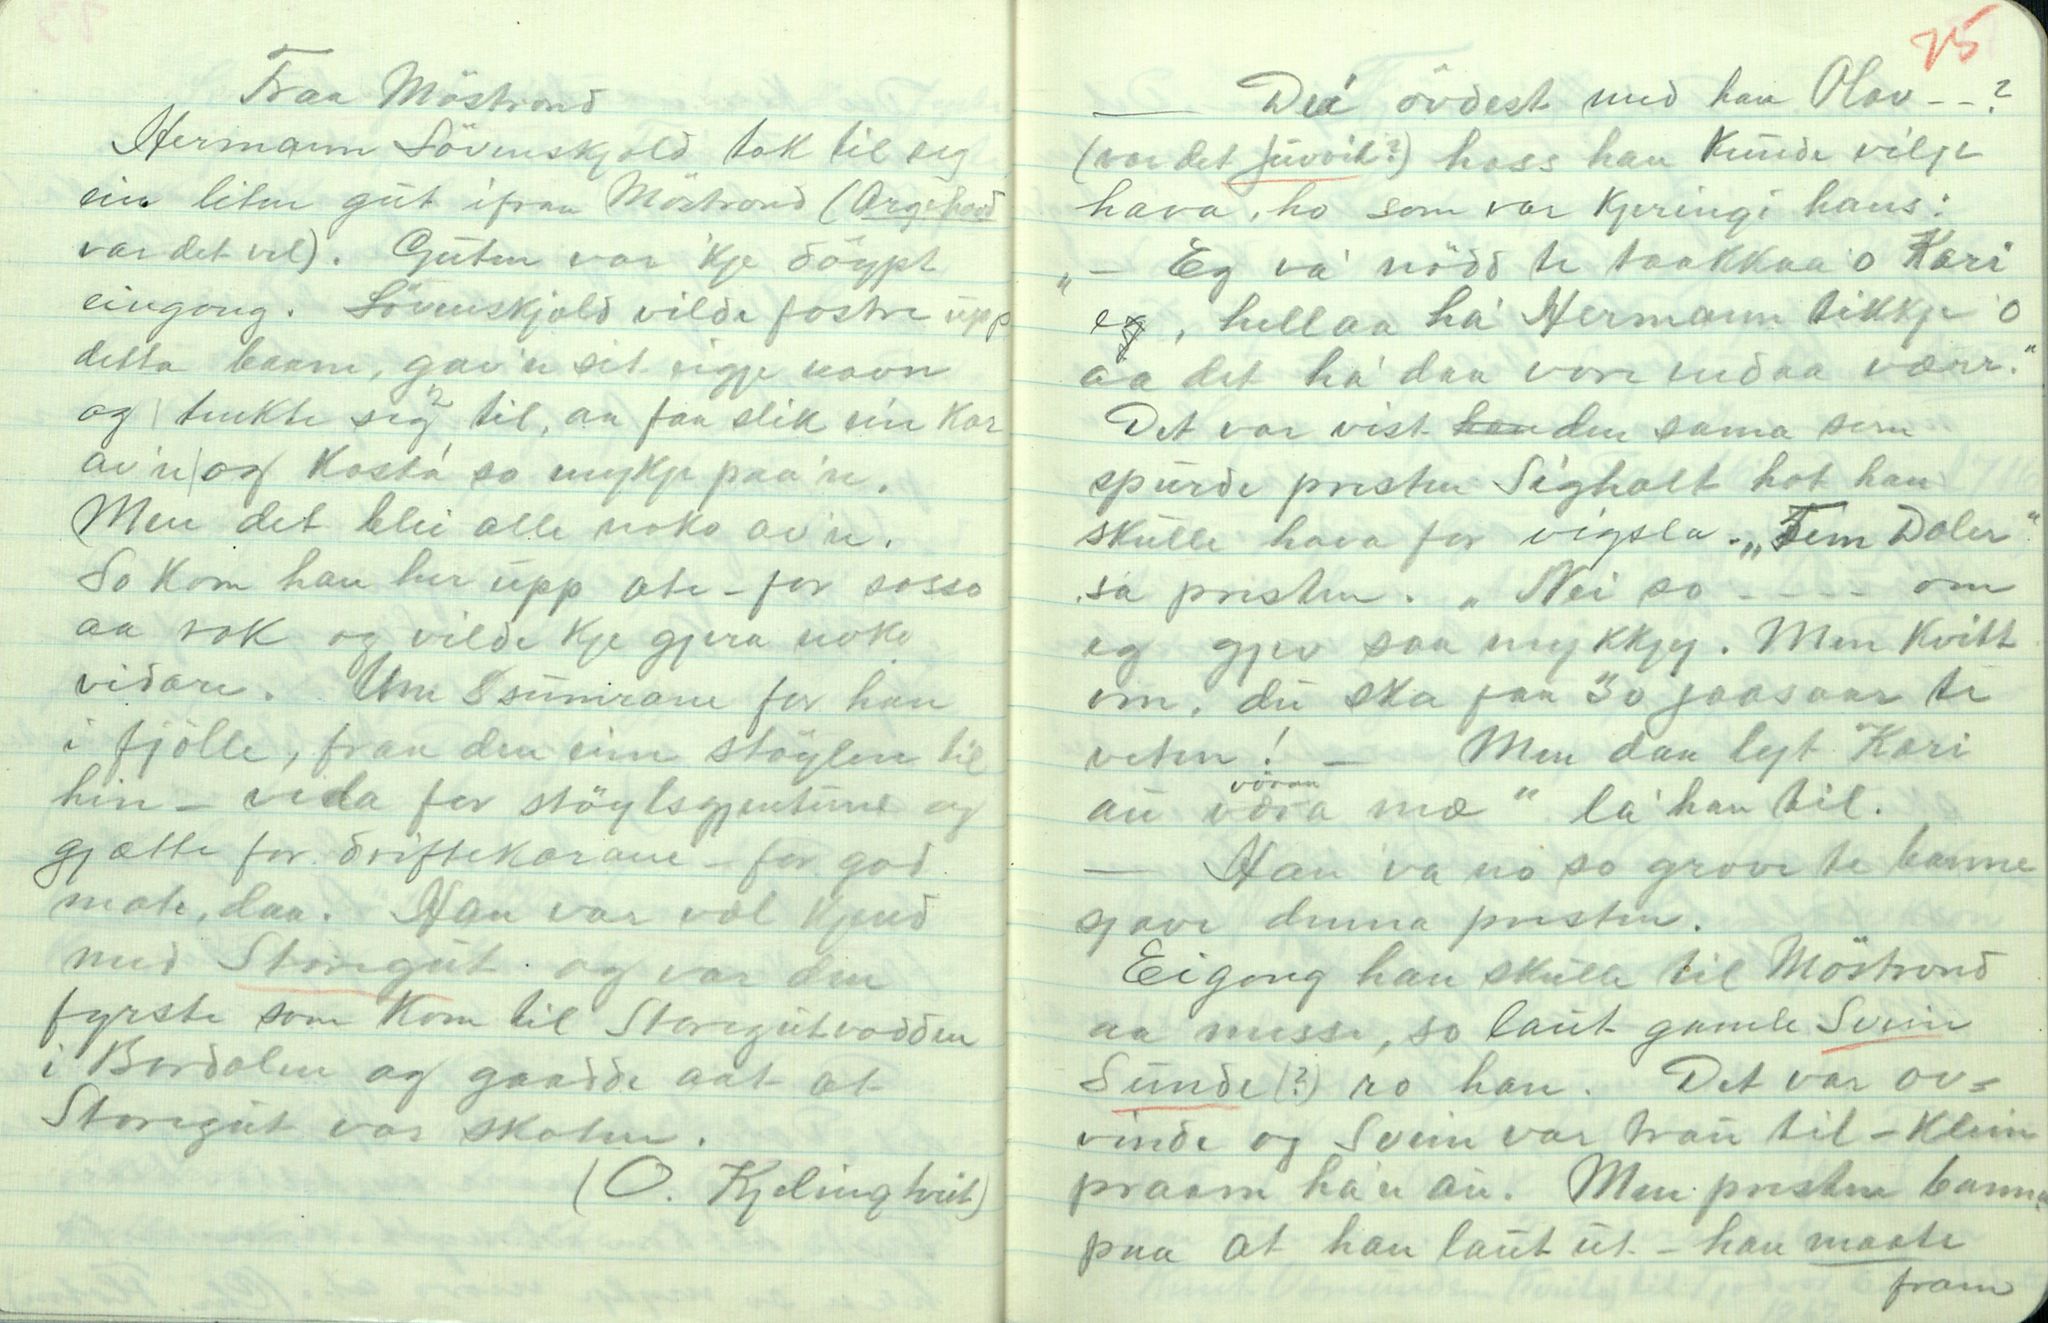 Fraa Möstrond
Hermann Lövenskjold tok til seg
ein liten gut ifraa Möstrond (Argehovd
var det vel). Guten var 'kje döypt
eingong. Lövenskjold vilde fostre upp
detta baane, gav'n sit eigje navn
og tenkte seg til, aa faa slik ein kar
av'n og kosta so mykje paa'n.
Men det blei alle noko av'n.
So kom han her upp ate - for sosso
aa rok og vilde kje gjera noko
vidare. Um sumrane for han
i fjölle, fraa den eine stöylen til
hin - veda for stöylsgjentune og
gjætte for driftekarane - for god
mate, daa. Han var vel kjend
med Storegut og var den
fyrste som kom til Storegutvodden
i Bordalen og gaadde aat at
Storegut var skoten.
(O. Kjelinghvit)
75
— Dei övdest med han Olav --?
(var det Juvoit?) hoss han kunde vilje
hava, ho som var kjeringi hans:
"— Eg va' nödd te taakkaa 'o Kari
eg, hell aa ha' Hermann tikkje 'o
aa det ha' daa vore endaa værr."
Det var vist den sama som
spurde presten Sighalt hot han
skulle hava for vigsla. „Fem Daler"
sa presten. „Nei so ---- om
eg gjev saa mykkjy. Men kvitt
om, du ska faa 30 jaasaar te
veten! — Men daa lyt Kari
au væra mæ" la' han til.
vöraa
— Han va no so grove te banne
sjave denna presten.
Eigong han skulle til Möstrond
aa messe, so laut gamle Svein
Sunde (?) ro han. Det var ov=
vinde og Svein var trau til - klein
praam ha'n au. Men presten banna
paa at han laut ut - han maate
fram